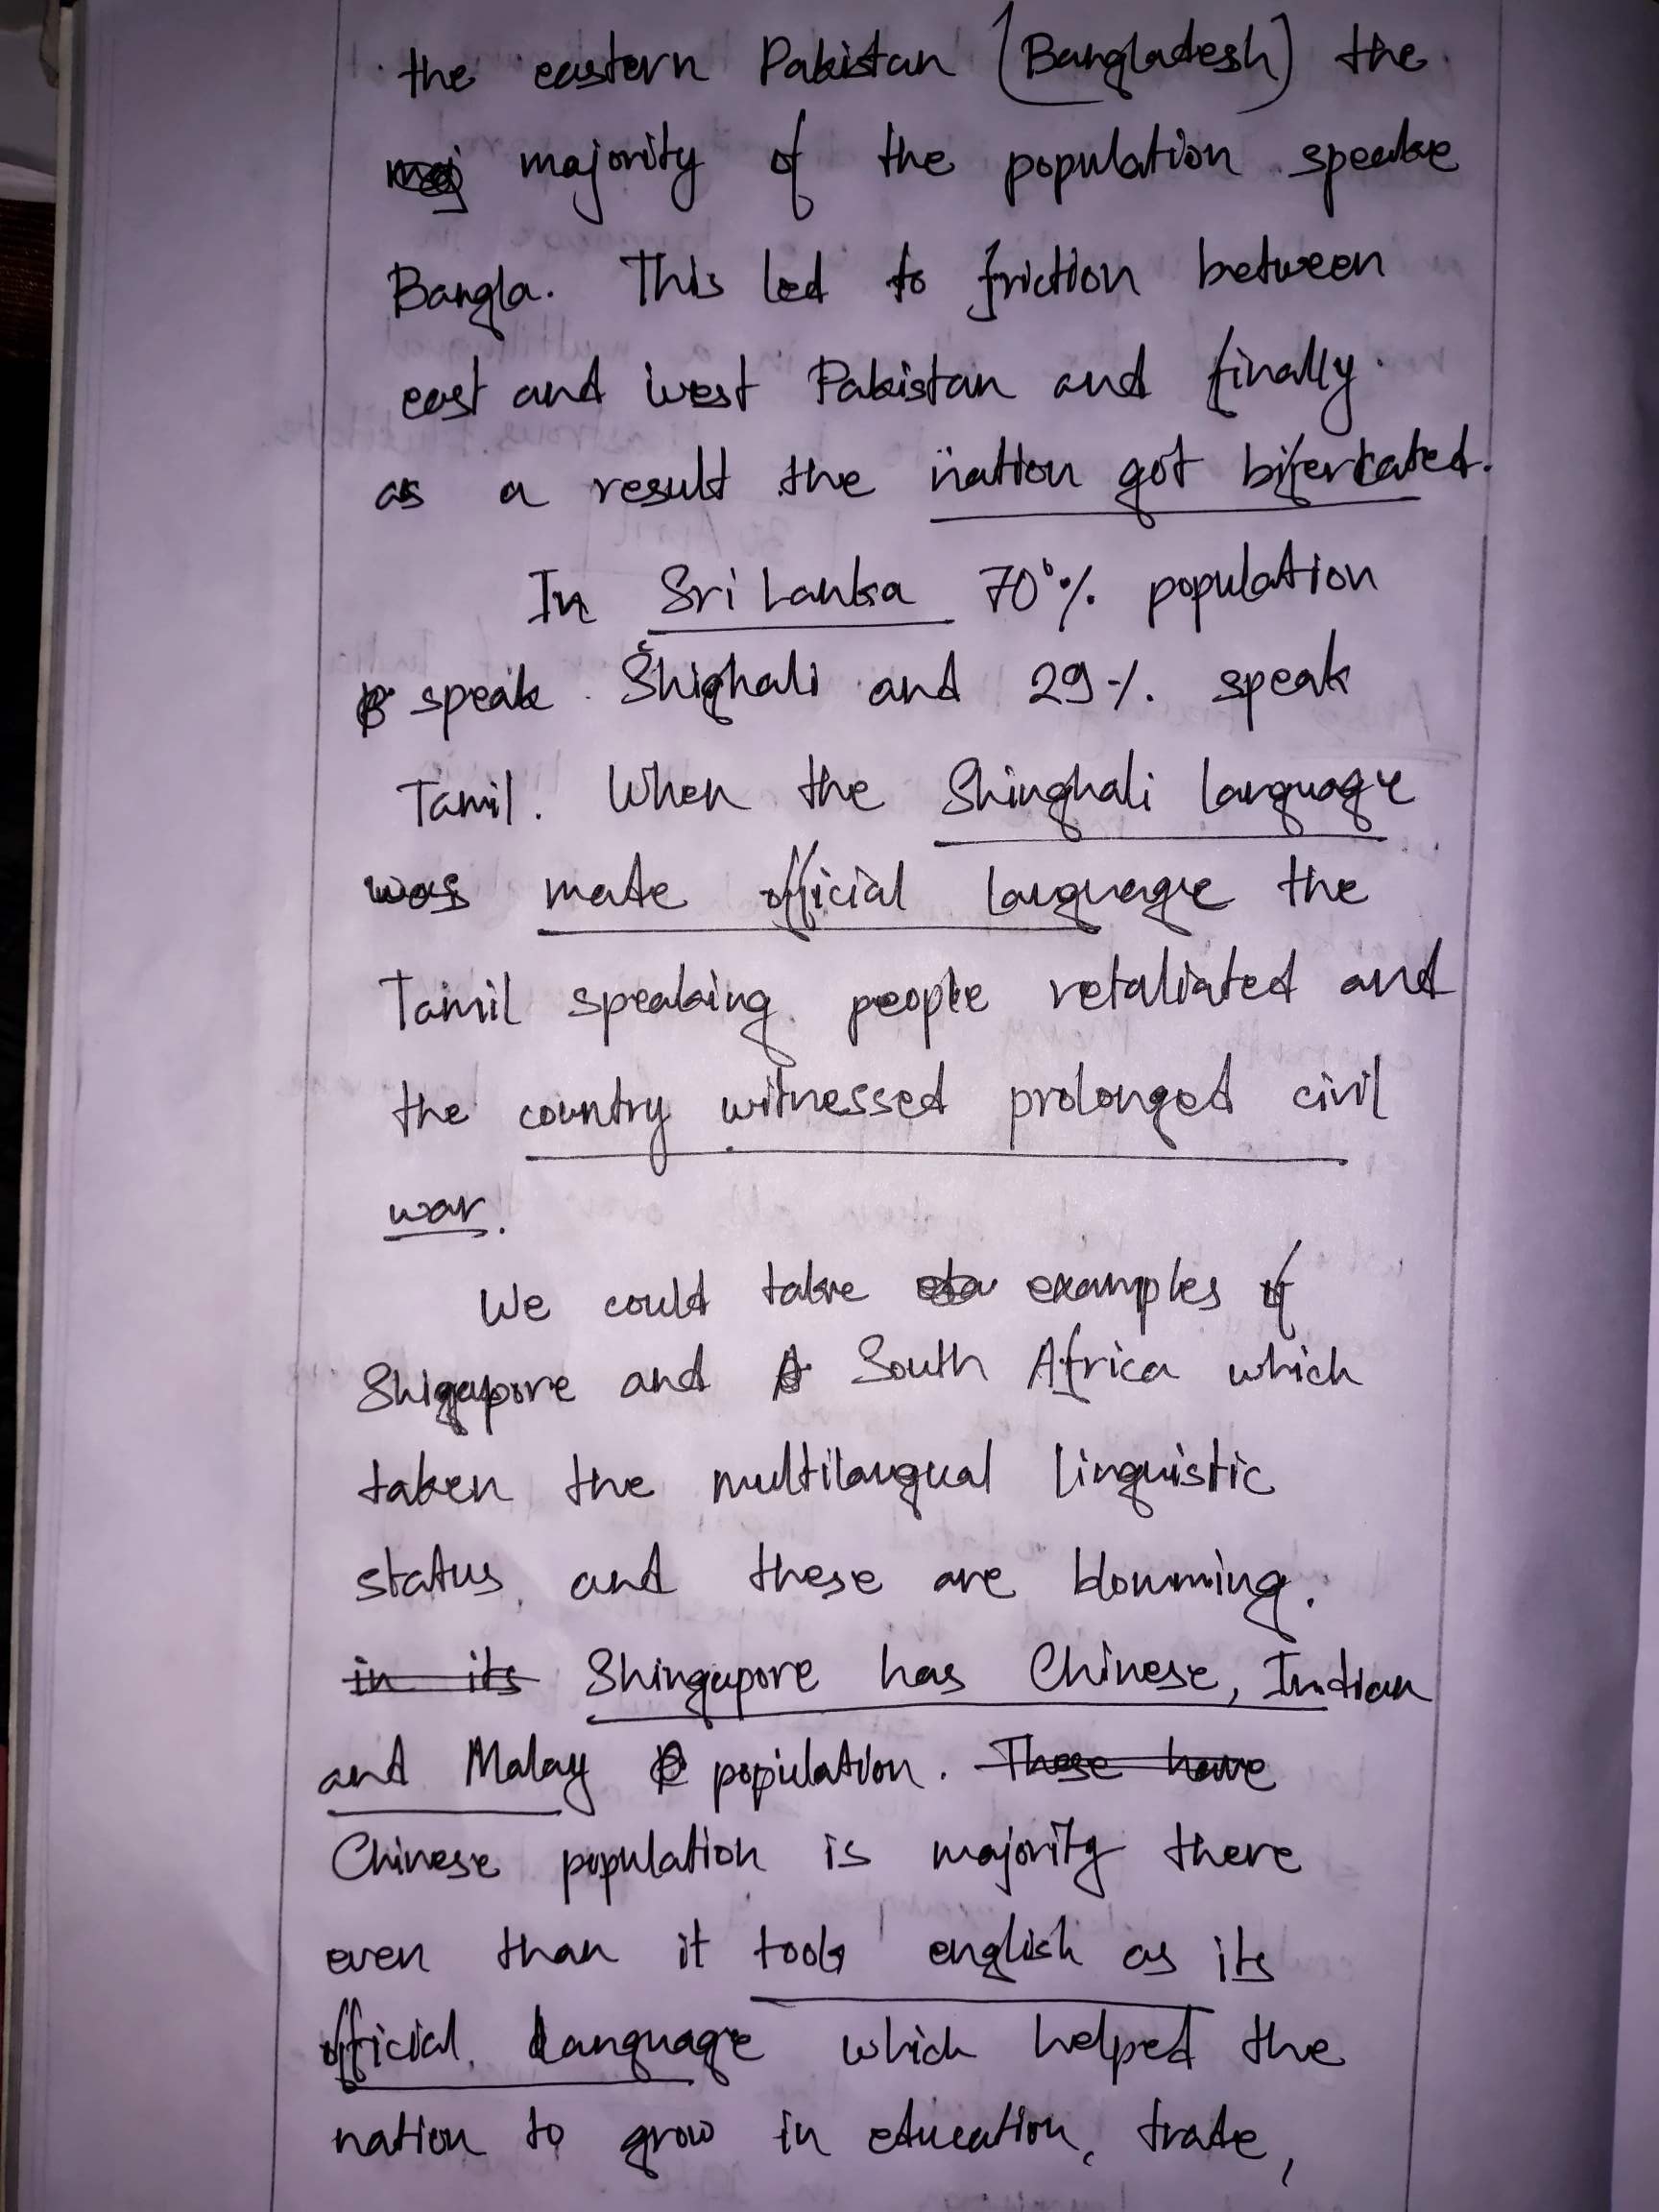 the eastern Pakistan (Bangladesh) the
majority of the population speake
Bangla. This led to friction between
east and west Pakistan and finally
as a result the nation got bifercated.
In Sri Lanka 70% population
speak Shighali and 29% speak
Tamil. When the Shinghali language
was made official language the
Tamil speaking people retaliated and
the country witnessed prolonged civil
war.
We could take examples of
Shigapore and South Africa which
taken the multilangual linguistic
status, and these are blomming.
in its Shingapore has Chinese, Indian
and Malay population. These have
Chinese population is majority there
even than it took english as its
official language which helped the
nation to grow in education, trade,